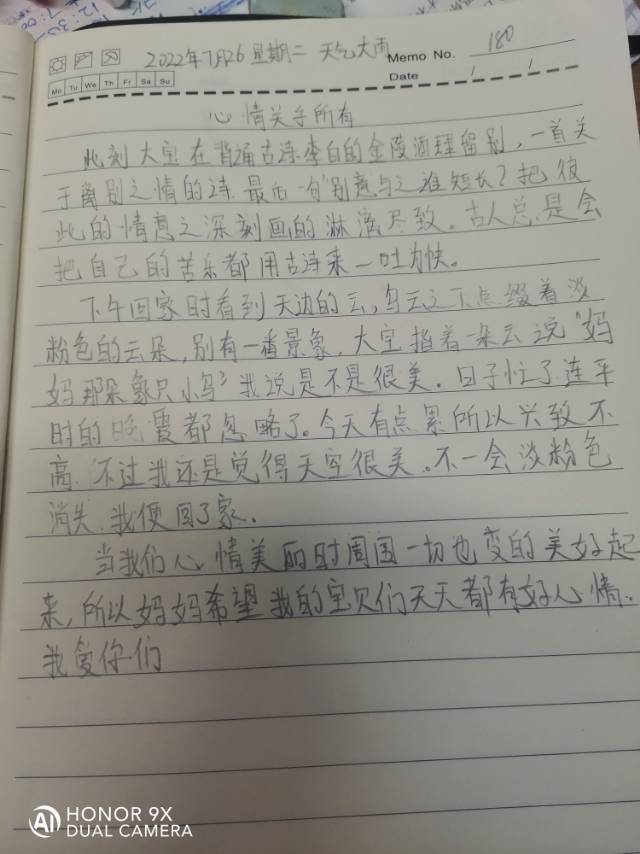 2022年7月26 星期二 天气大雨
Memo No. 180
Mo Tu We Th Fr Sa Su
Date / /
心情关乎所有
此刻大宝在背诵古诗李白的金陵酒肆留别，一首关
于离别之情的诗. 最后一句"别意与之谁短长？把彼
此的情意之深刻画的淋漓尽致。古人总是会
把自己的苦乐都用古诗来一吐为快。
下午回家时看到天边的云，乌云之下点缀着淡
粉色的云朵，别有一番景象. 大宝指着一朵云说"妈
妈那朵象只小鸟"我说是不是很美. 日子忙了连平
时的晚霞都忽略了。今天有点累所以兴致不
高. 不过我还是觉得天空很美。不一会淡粉色
消失. 我便回了家.
当我们心情美丽时周围一切也变的美好起
来，所以妈妈希望我的宝贝们天天都有好心情.
我爱你们
HONOR 9X
AI DUAL CAMERA